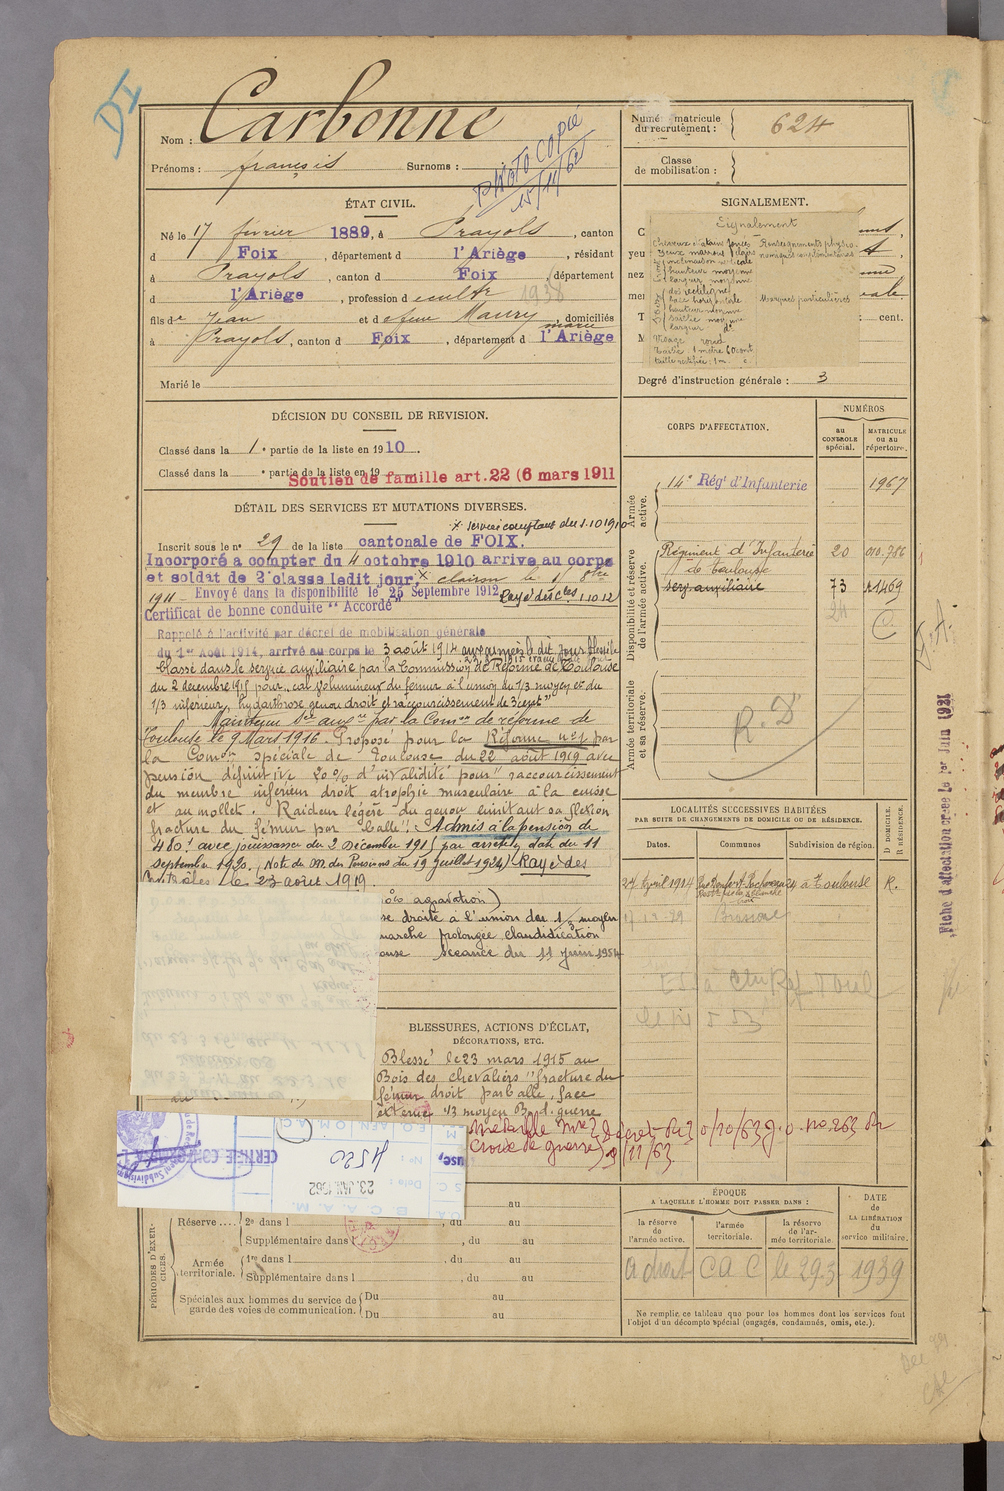 DI
Nom : Carbonne
Prénoms : françois Surnoms :
PHOTOCOPIÉ
15/11/62
Numéro matricule
du recrutement : 624
Classe
de mobilisation :
ÉTAT CIVIL.
Né le 17 février 1889, à Prayols, canton
d Foix, département d l'Ariège, résidant
à Prayols, canton d Foix, département
d l'Ariège, profession d cultr 1938
fils de Jean et d efeue Maury marie, domiciliés
à Prayols, canton d Foix, département d l'Ariège
Marié le
SIGNALEMENT.
Signalement
Cheveux châtains foncés Renseignements physio-
Yeux marrons clairs nomiques complémentaires
inclinaison verticale
hauteur moyenne
largeur moyenne
dos rectiligne
base horizontale Marques particulières
hauteur moyenne
saillie moyenne
largeur do
Visage rond
Taille 1 mètre 60 cent
taille rectifiée : 1 m. c.
cent.
Degré d'instruction générale : 3
DÉCISION DU CONSEIL DE REVISION.
Classé dans la 1e partie de la liste en 1910.
Classé dans la e partie de la liste en 19
Soutien de famille art. 22 (6 mars 1911
DÉTAIL DES SERVICES ET MUTATIONS DIVERSES.
x service comptant du 1.10 1910
Inscrit sous le no 29 de la liste cantonale de FOIX.
Incorporé à compter du 4 octobre 1910 arrive au corps
et soldat de 2e classe ledit jour, x clairon le 1r 8bre
1911 - Envoyé dans la disponibilité le 25 Septembre 1912 Rayé des cles 1.10.12
Certificat de bonne conduite "Accordé"
Rappelé à l'activité par décret de mobilisation générale
du 1er Août 1914, arrivé au corps le 3 août 1914
Classé dans le service auxiliaire par la Commission de Réforme de Toulouse
du 2 décembre 1915 pour "cal volumineux du femur à l'union du 1/3 moyen et du
1/3 inférieur, hydarthrose genou droit et raccourcissement de 3 cent"
Maintenu Sce auxre par la Comon de réforme de
Toulouse le 9 Mars 1916. Proposé pour la Réforme no 1 par
la Comon spéciale de Toulouse du 22 août 1919 avec
pension définitive 20 % d'invalidité pour "raccourcissement
du membre inférieur droit atrophie musculaire à la cuisse
et au mollet. Raideur légère du genou limitant sa flexion
fracture du fémur par balle". Admis à la pension de
480f avec jouissance du 2 Décembre 1915 par arrêté en date du 11
septembre 1920. (Note du M. des Pensions du 19 juillet 1924) Rayé des
Contrôles le 23 août 1919.
agravation)
se droite à l'union du 1/3 moyen
marche prolongée claudication
ouse séance du 11 Juin 1954
BLESSURES, ACTIONS D'ÉCLAT,
DÉCORATIONS, ETC.
Blessé le 23 mars 1915 au
Bois des chevaliers "fracture du
fémur droit par balle, face
externe 1/3 moyen B. d. guerre
Médaille Mre décret du 30/10/63 J.O. No 263 du
Croix de guerre 9/11/63
CORPS D'AFFECTATION.
NUMÉROS
au
CONTROLE
spécial.
MATRICULE
ou au
répertoire.
Armée
active.
14e Régt d'Infanterie 1967
Disponibilité et réserve
de l'armée active.
Régiment d'Infanterie 20 010.786
de Toulouse
serv. auxiliaire 73 1469
24
Armée territoriale
et sa réserve.
R. D
LOCALITÉS SUCCESSIVES HABITÉES
PAR SUITE DE CHANGEMENTS DE DOMICILE OU DE RÉSIDENCE.
Dates. Communes Subdivision de région. D DOMICILE. R RÉSIDENCE.
27 Avril 1914 à Toulouse R.
Fiche d'affectation créée le 1er Juin 1921
4520
CERTIFIÉE CONFORME
23. JAN. 1962
PÉRIODES D'EXER-
CICES.
au
Réserve .... 2e dans l , du au
Supplémentaire dans l , du au
Armée
territoriale.
1re dans l , du au
Supplémentaire dans l , du au
Spéciales aux hommes du service de
garde des voies de communication.
Du au
Du au
ÉPOQUE
A LAQUELLE L'HOMME DOIT PASSER DANS :
la réserve
de
l'armée active.
l'armée
territoriale.
la réserve
de l'ar-
mée territoriale.
DATE
de
LA LIBÉRATION
du
service militaire.
a droit C A C le 29.3 1939
Ne remplir ce tableau que pour les hommes dont les services font
l'objet d'un décompte spécial (engagés, condamnés, omis, etc.).